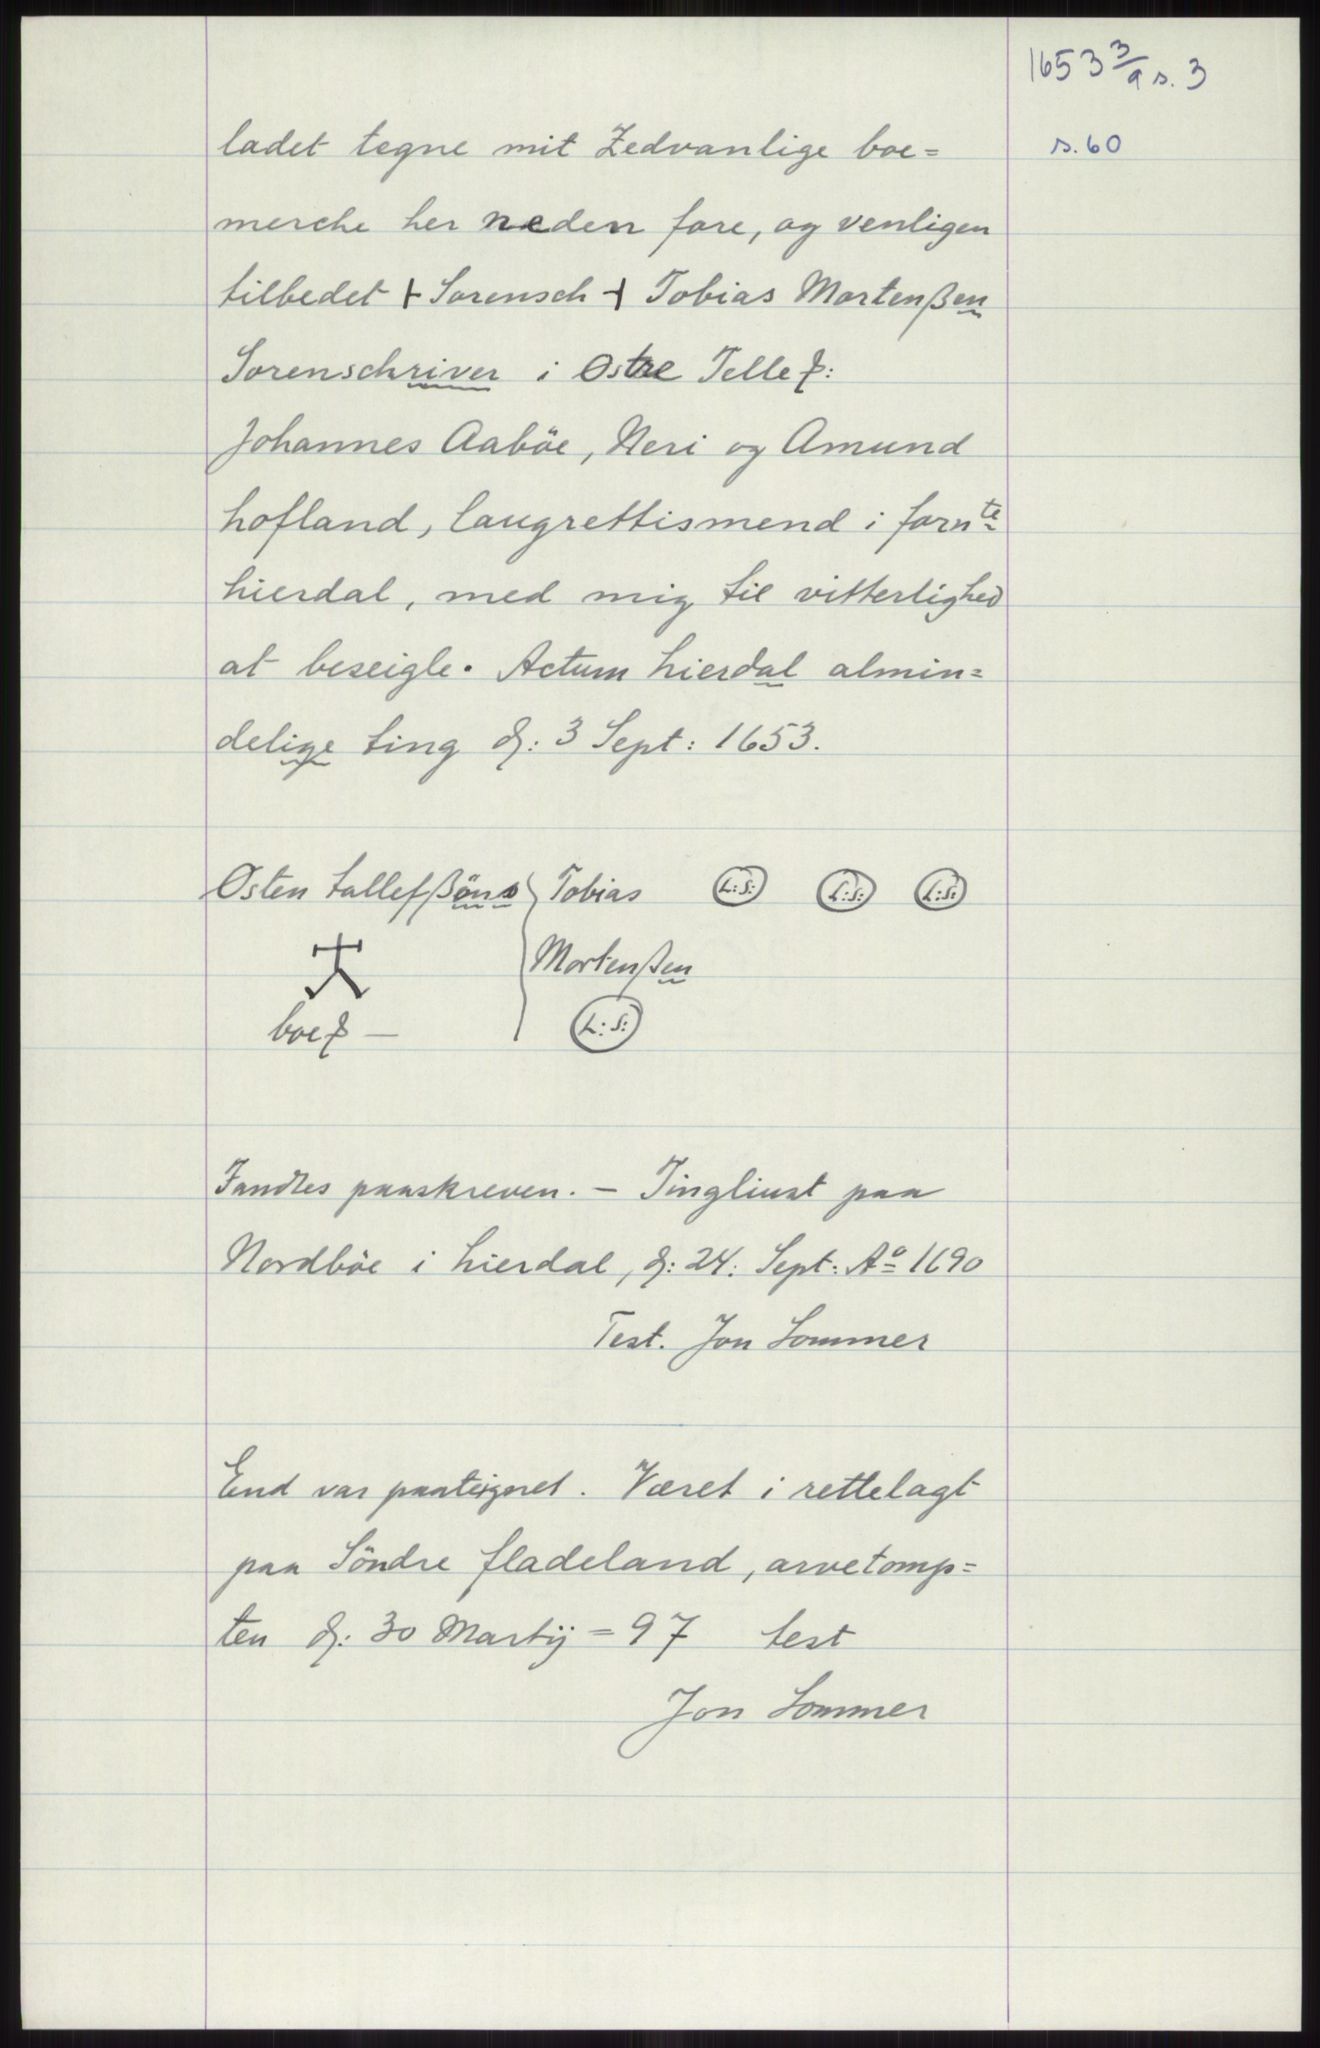 1653 3/9 s. 3
s. 60
ladet tegne mit Zedvanlige boe=
merche her neden fore, og venligen
tilbedet Sorensch Tobias Mortenßen
Sorenschriver i Ostre Telle
Johannes Aaböe, Neri og Amund
hofland, laugrettismend i fornte
hierdal, med mig til vitterlighed
at beseigle. Actum hierdal almin=
delige ting d: 3 Sept: 1653.
Osten tallefßöns Tobias L:S: L:S: L:S:
Mortenßen
L:S:
Fandtes paaskreven. - Tingliust paa
Nordböe i hierdal, d: 24: Sept: Ao 1690
Test. Jon Sommer
End var paateignet. Været i rettelagt
paa Söndre fladeland, arvetomp=
ten d: 30 Martij = 97 test
Jon Sommer